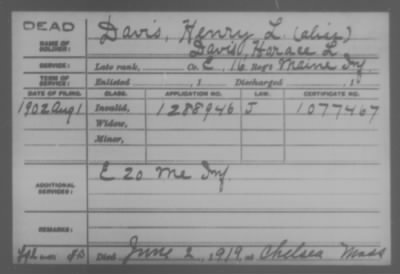 DEAD
NAME OF SOLDIER: Davis, Henry L. (alias)
Davis, Horace L
SERVICE: Late rank, Co. E, 16 Reg't Maine Inf.
TERM OF SERVICE: Enlisted , 1 Discharged , 1
DATE OF FILING. CLASS. APPLICATION NO. LAW. CERTIFICATE NO.
1902 Aug 1 Invalid, 1288946 J 1077467
Widow,
Minor,
ADDITIONAL SERVICES: E 20 Me Inf.
REMARKS:
Died June 2, 1919, at Chelsea Mass